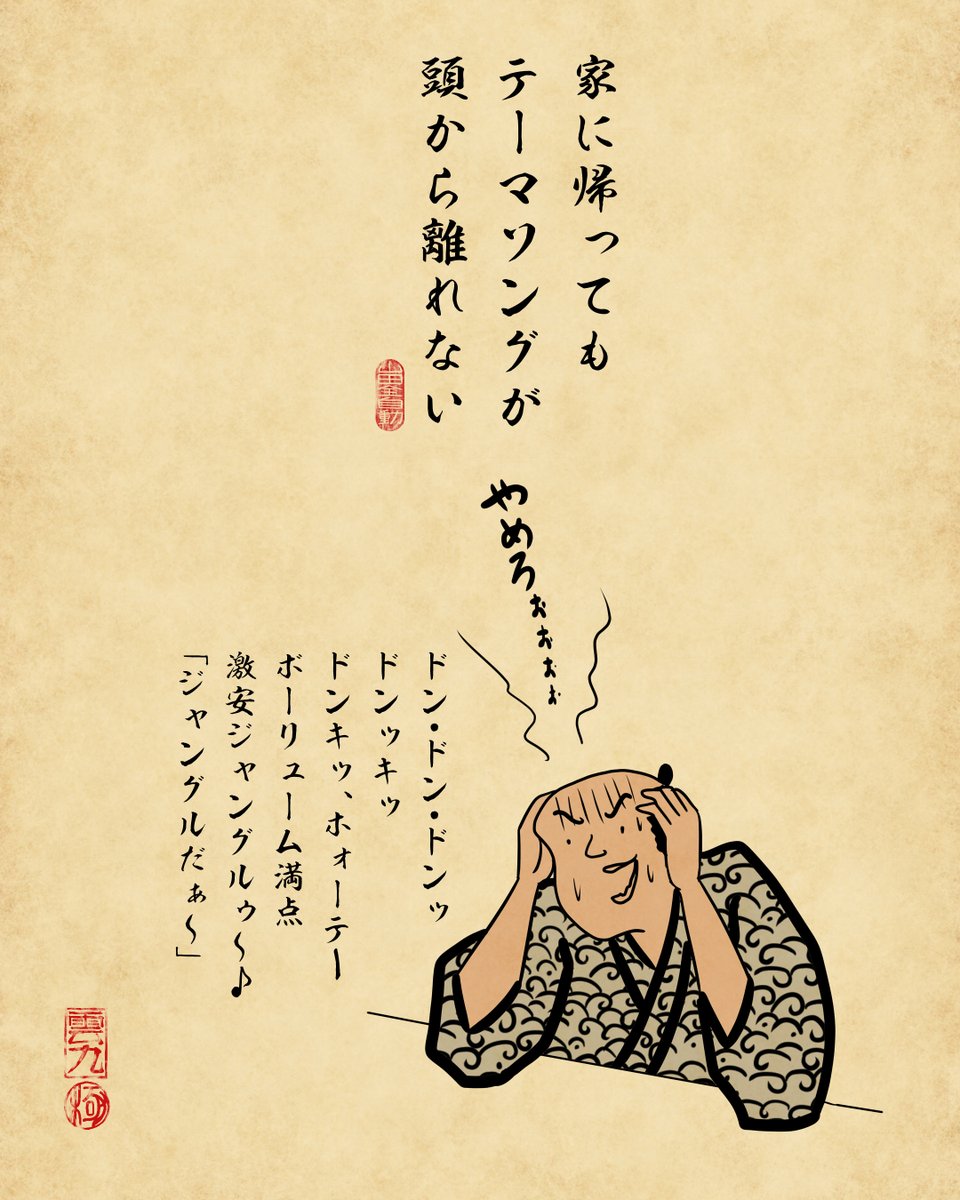 家に帰っても
テーマソングが
頭から離れない
やめろぉぉぉぉ
ドン・ドン・ドンッ
ドンッキッ
ドンキッ、ホォーテー
ボーリューム満点
激安ジャングルゥ～♪
「ジャングルだぁ～」
雲九
極